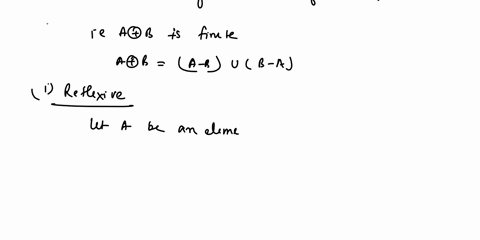 ie A⊕B is finite
A⊕B = (A-B) ∪ (B-A)
(i) Reflexive
let A be an eleme